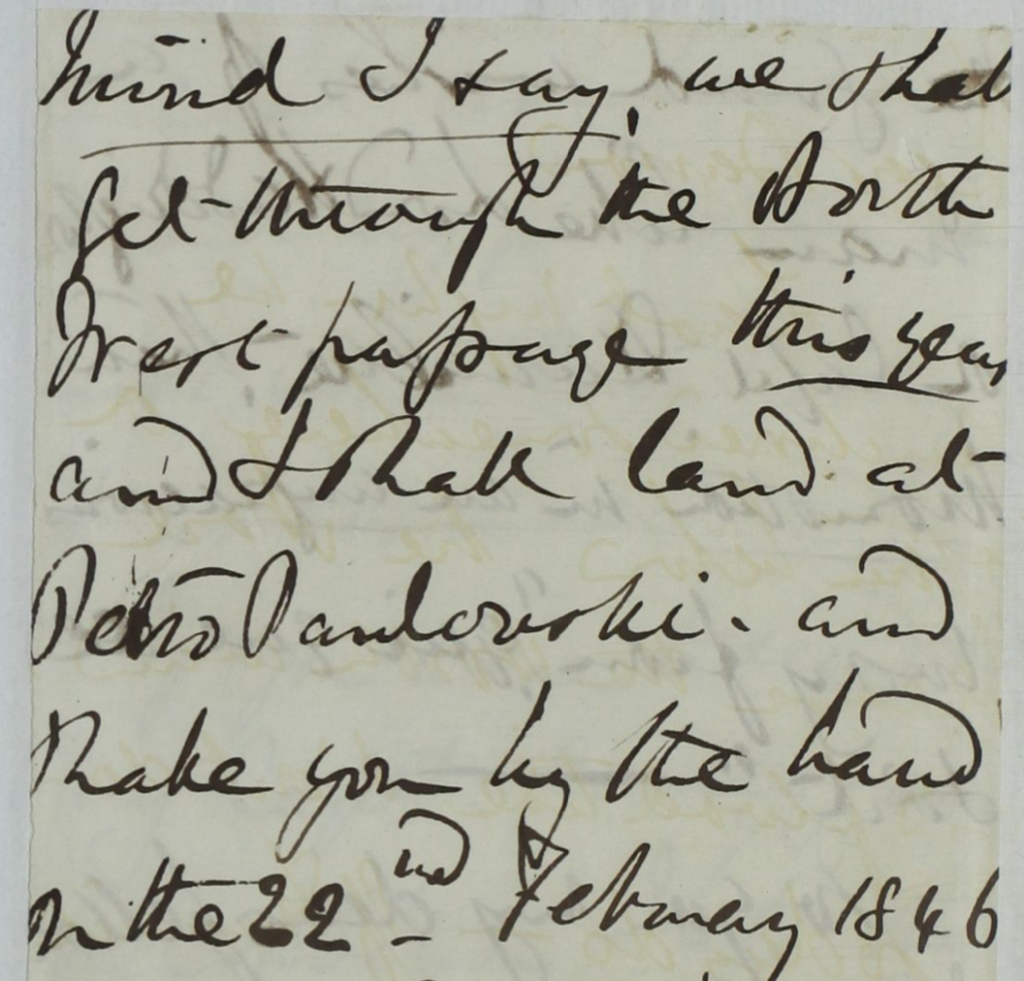 mind I say, we shall
get through the North
West passage this year
and I shall land at
Petro Paulowski - and
shake you by the hand
on the 22nd February 1846